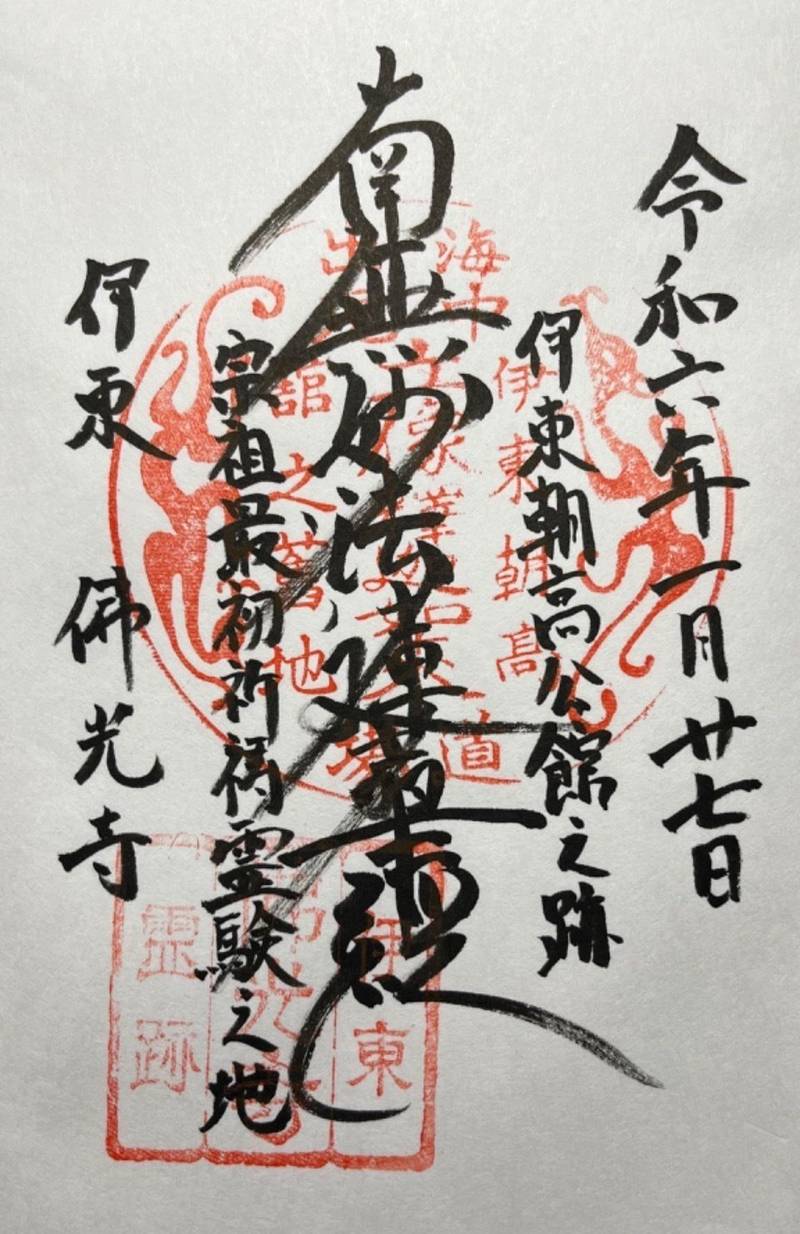 令和六年一月廿七日
伊東朝高公館之跡
南無妙法蓮華経
宗祖最初祈祷霊験之地
伊東 佛光寺
海中出現
伊東朝高
館之舊地
道場
伊東
佛光寺
霊跡